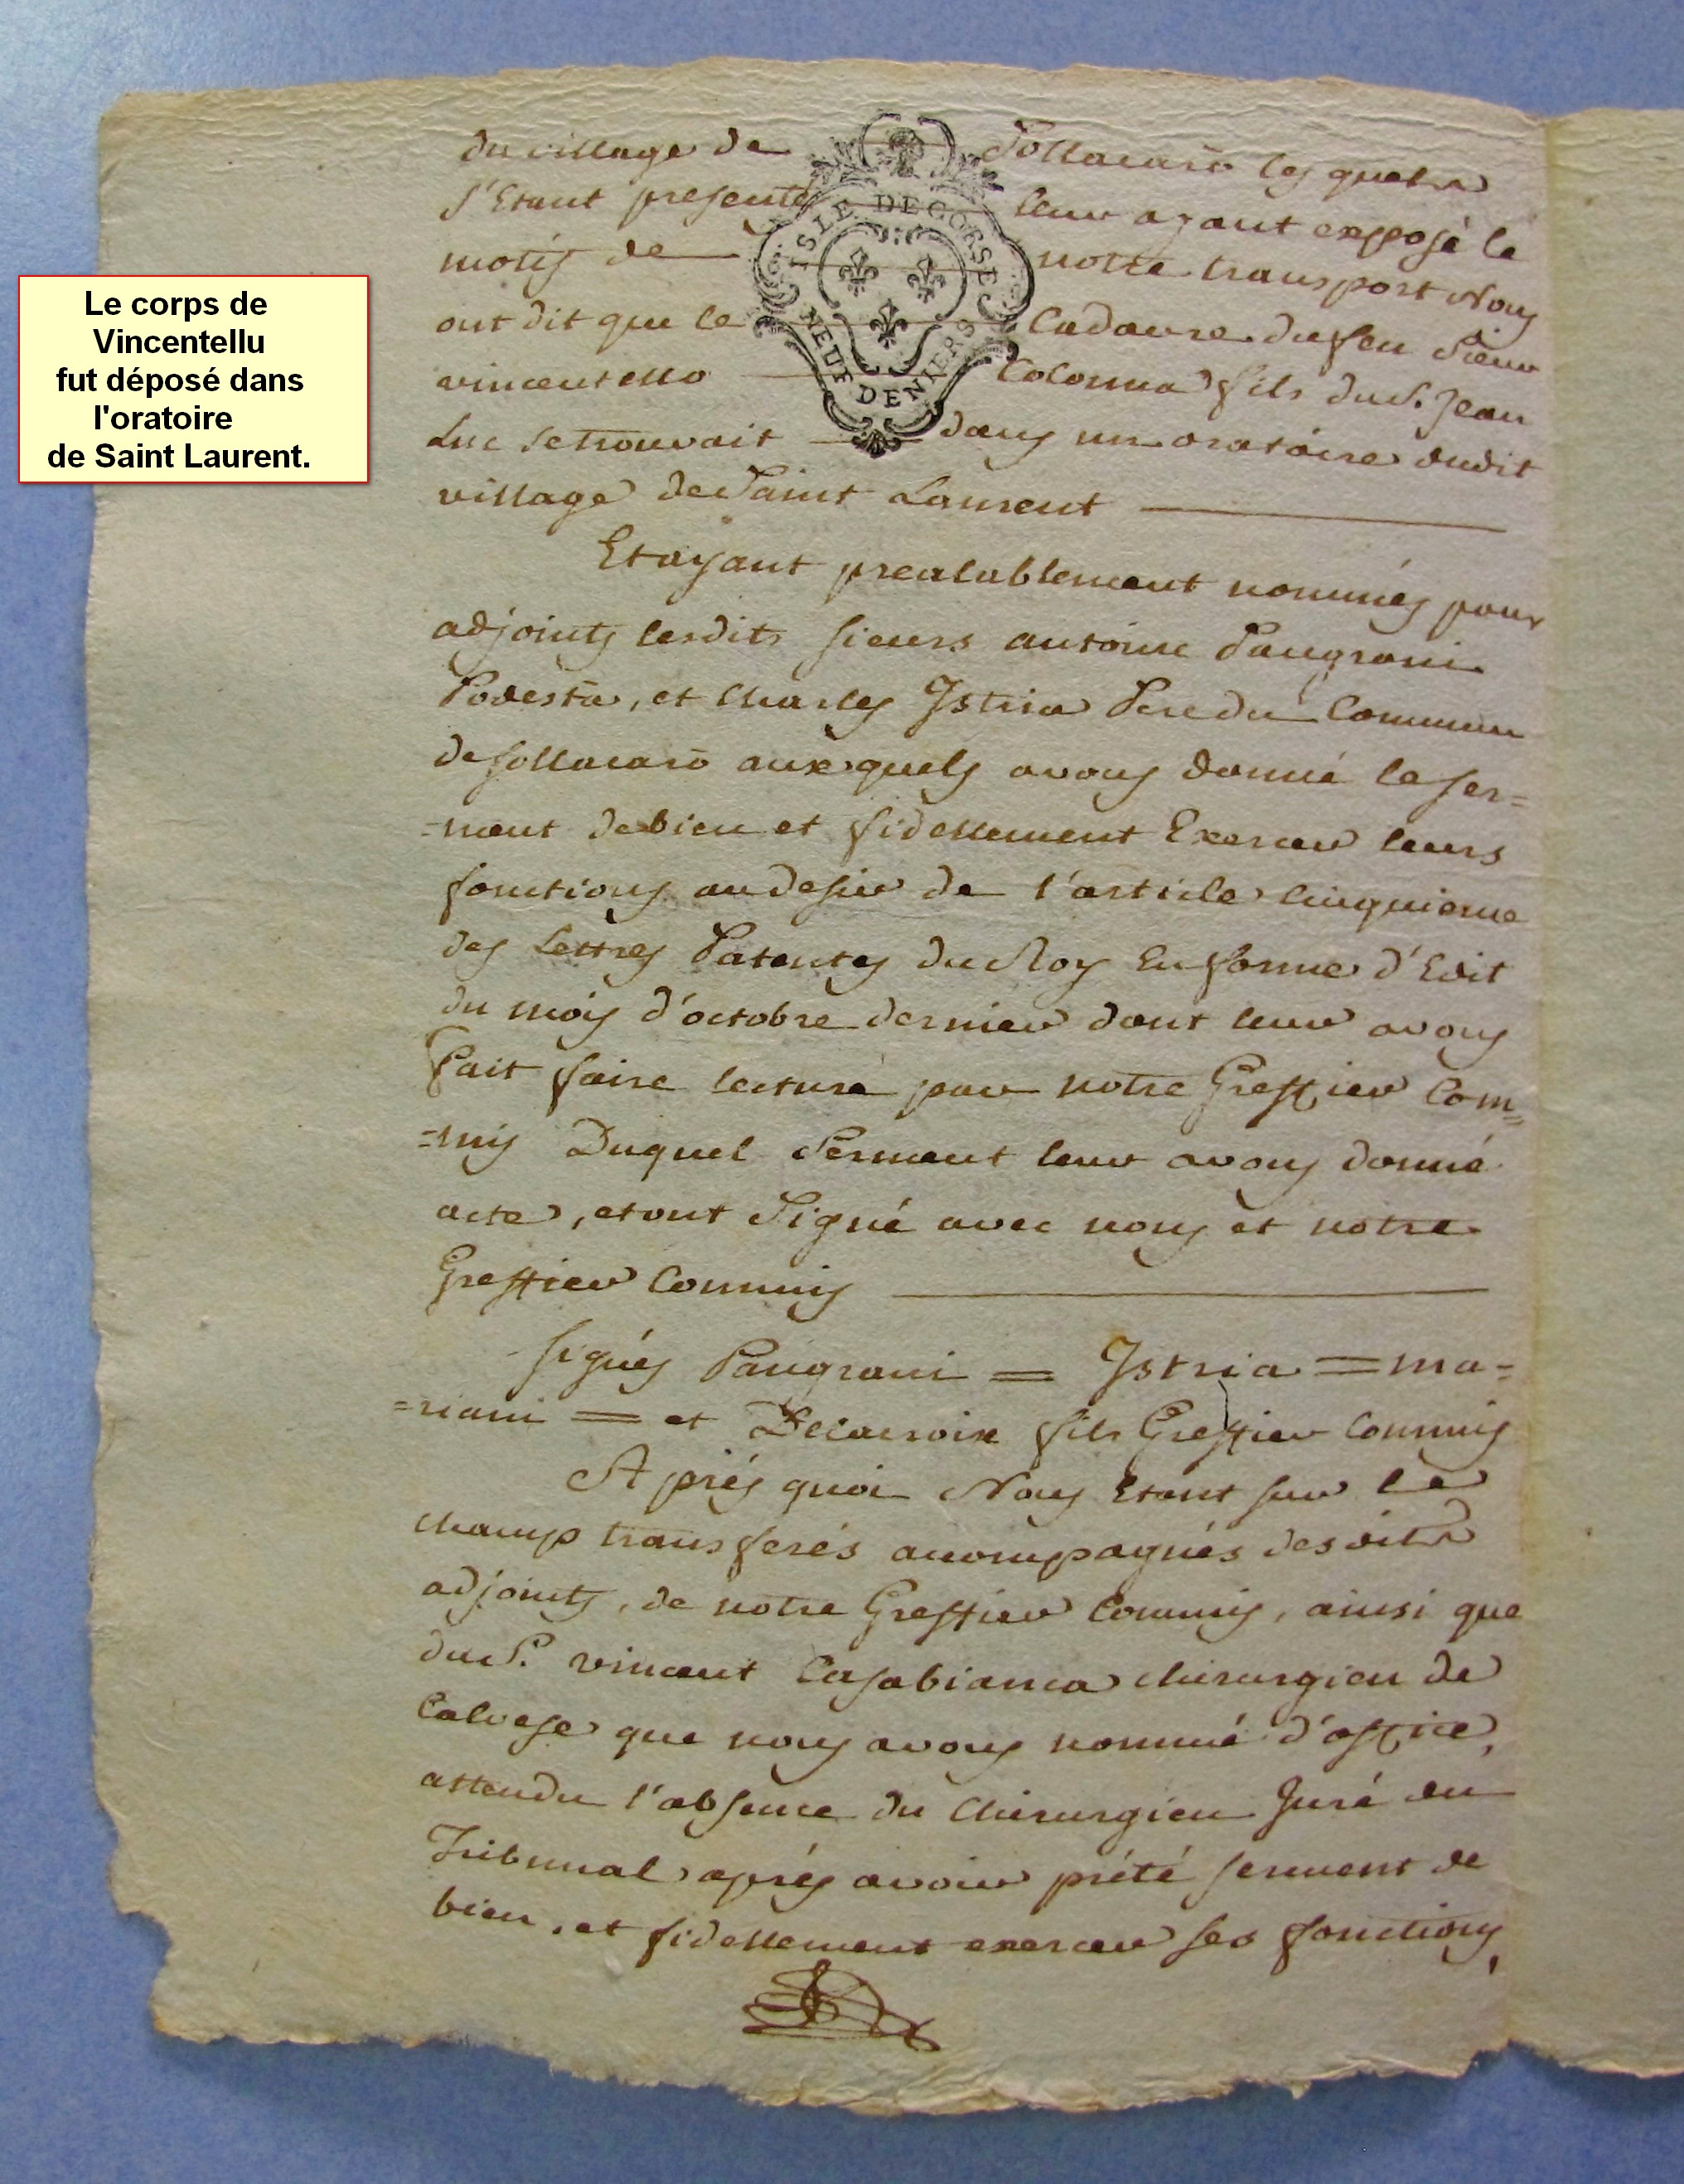 Le corps de
Vincentellu
fut déposé dans
l'oratoire
de Saint Laurent.
ISLE DE CORSE
NEUF DENIERS
du village de Sollacarò les quels
s'Etant presenté leur ayant exposé le
motif de notre transport Nous
ont dit que le Cadavre du feu Sieur
vincentello Colonna fils du S. Jean
Luc se trouvait dans un oratoire dudit
village de Saint Laurent
Et ayant prealablement nommés pour
adjoints lesdits sieurs antoine Pangrani
Podesta, et Charles Istria Pere du Commun
de sollacarò aux quels avons donné le ser=
=ment de bien et fidellement Exercer leurs
fonctions au desir de l'article Cinquieme
des Lettres Patentes du Roy En forme d'Edit
du mois d'octobre dernier dont leur avons
Fait faire lecture par notre Greffier Com=
=mis Duquel Serment leur avons donné
acte, et ont Signé avec nous et notre
Greffier Commis
signés Pangrani = Istria = ma=
=riani = et Delacroix fils Greffier Commis
Aprés quoi Nous Etant sur le
champ transferés accompagnés desdits
adjoints, de notre Greffier Commis, ainsi que
du S. vincent Casabianca chirurgien de
Calvese que nous avons nommé d'office,
attendu l'absence du Chirurgien Juré du
Tribunal aprés avoir prété serment de
bien, et fidellement exercer ses fonctions,